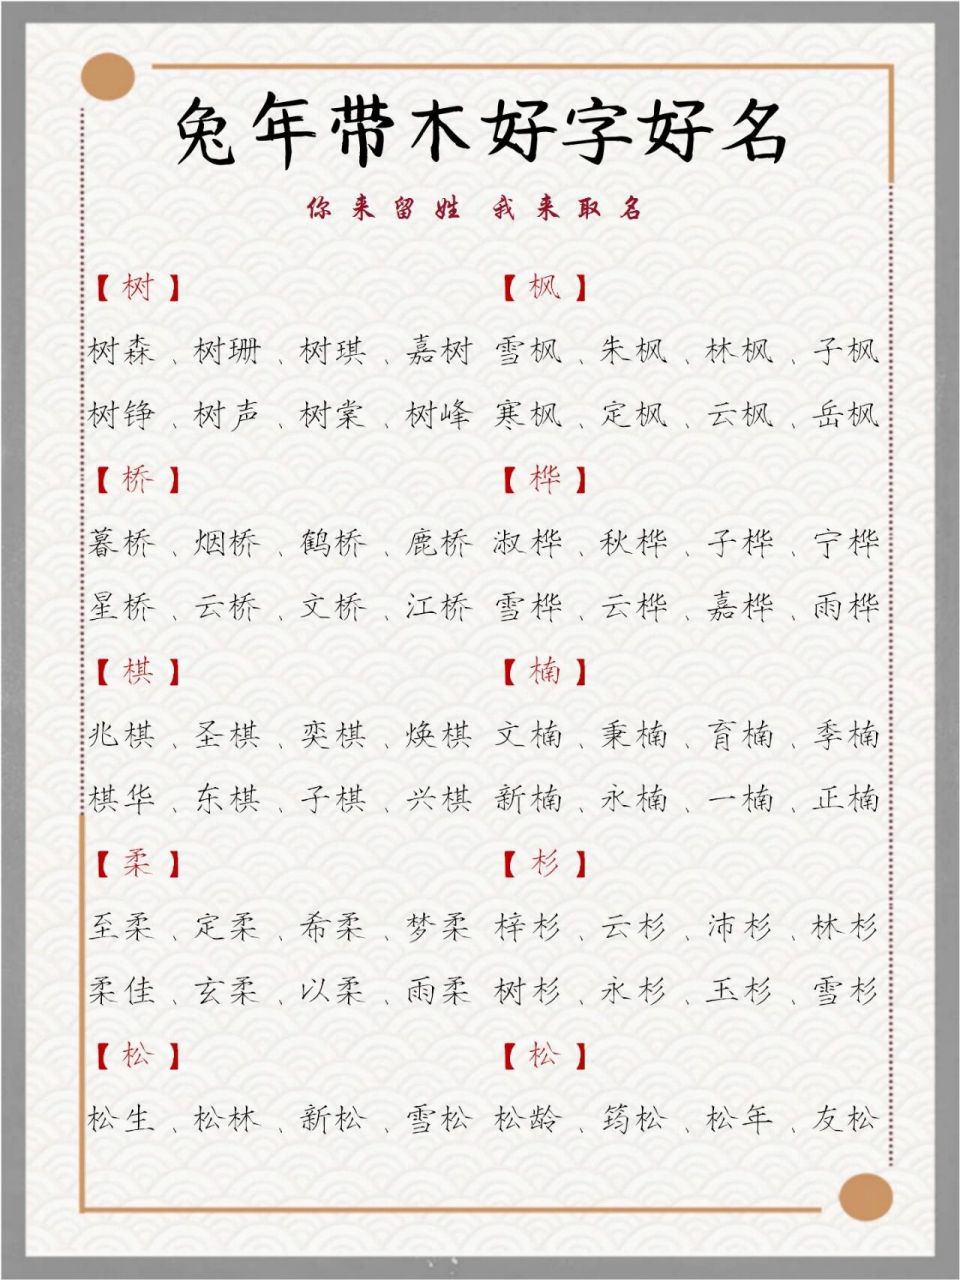 兔年带木好字好名
你来留姓 我来取名
【树】
树森、树珊、树琪、嘉树
树铮、树声、树棠、树峰
【枫】
雪枫、朱枫、林枫、子枫
寒枫、定枫、云枫、岳枫
【桥】
暮桥、烟桥、鹤桥、鹿桥
星桥、云桥、文桥、江桥
【桦】
淑桦、秋桦、子桦、宁桦
雪桦、云桦、嘉桦、雨桦
【棋】
兆棋、圣棋、奕棋、焕棋
棋华、东棋、子棋、兴棋
【楠】
文楠、秉楠、育楠、季楠
新楠、永楠、一楠、正楠
【柔】
至柔、定柔、希柔、梦柔
柔佳、玄柔、以柔、雨柔
【杉】
梓杉、云杉、沛杉、林杉
树杉、永杉、玉杉、雪杉
【松】
松生、松林、新松、雪松
【松】
松龄、筠松、松年、友松